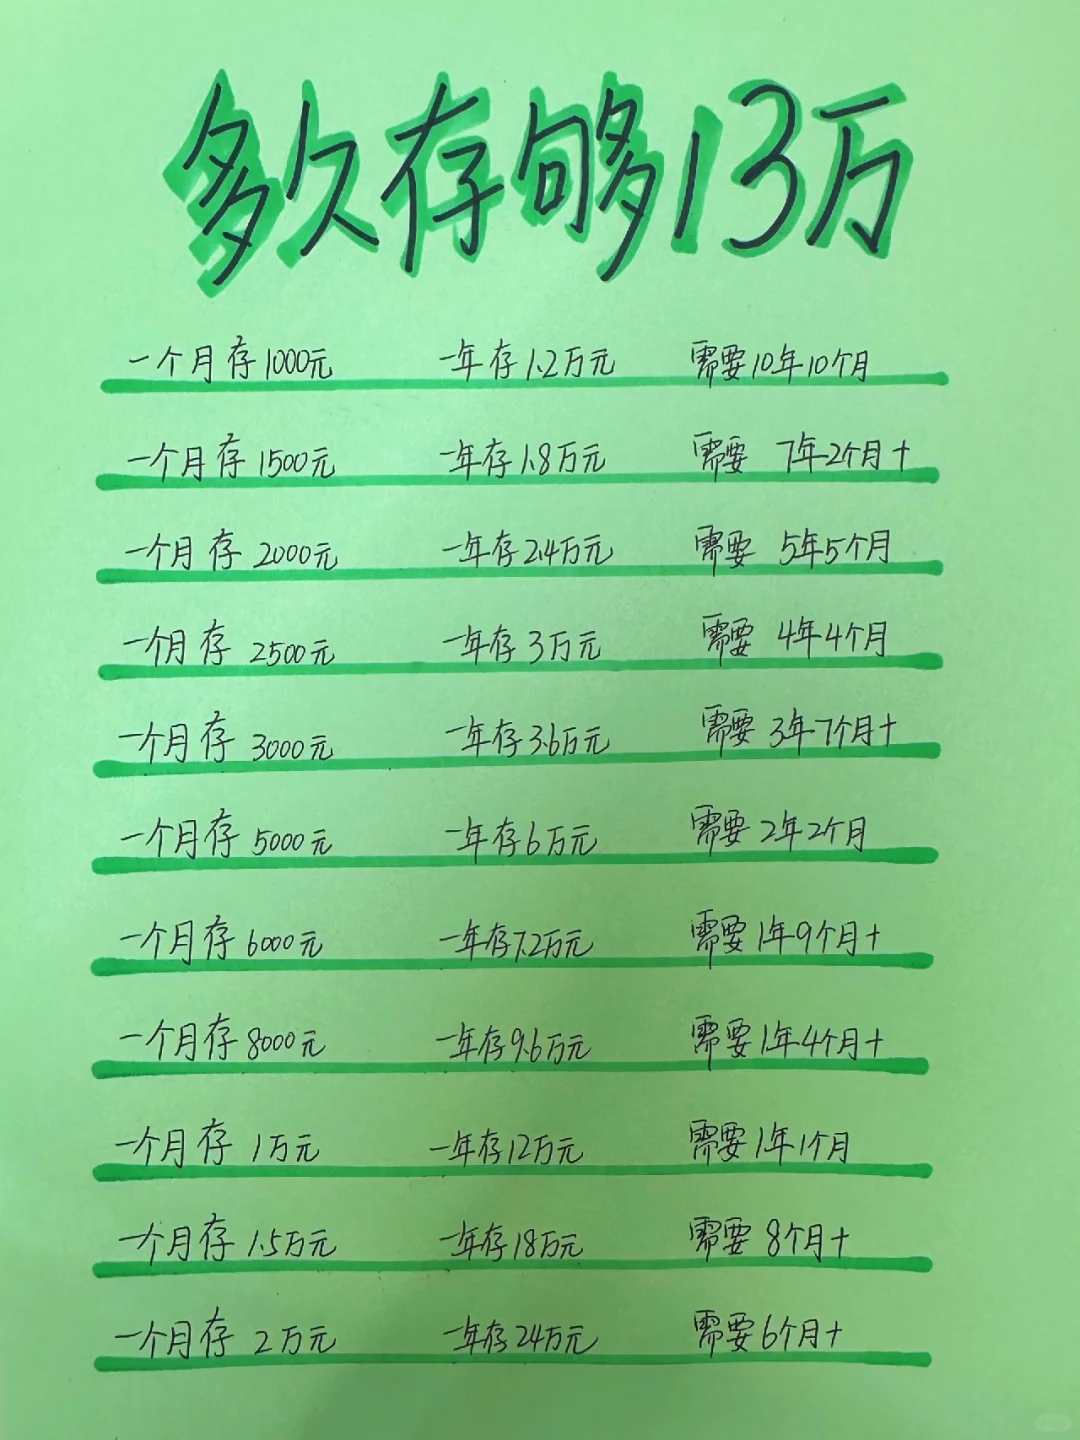 多久存够13万
一个月存1000元 一年存1.2万元 需要10年10个月
一个月存1500元 一年存1.8万元 需要 7年2个月+
一个月存 2000元 一年存2.4万元 需要 5年5个月
一个月存 2500元 一年存3万元 需要 4年4个月
一个月存 3000元 一年存3.6万元 需要 3年7个月+
一个月存 5000元 一年存6万元 需要2年2个月
一个月存 6000元 一年存7.2万元 需要1年9个月+
一个月存 8000元 一年存9.6万元 需要1年4个月+
一个月存 1万元 一年存12万元 需要1年1个月
一个月存 1.5万元 一年存18万元 需要 8个月+
一个月存 2万元 一年存24万元 需要6个月+